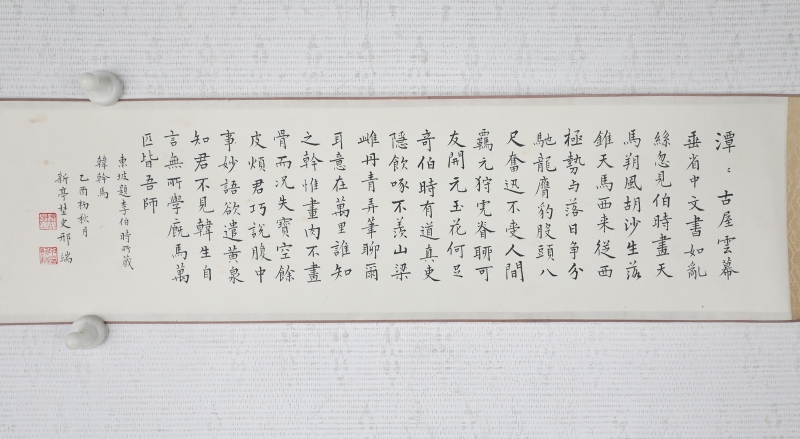 潭〻古屋雲幕
垂省中文書如亂
絲忽見伯時畫天
馬朔風胡沙生落
錐天馬西来從西
極勢与落日争分
馳龍膺豹股頭八
尺奮迅不受人間
羈元狩虎脊聊可
友開元玉花何足
奇伯時有道真吏
隱飲啄不羨山梁
雌丹青弄筆聊爾
耳意在萬里誰知
之幹惟畫肉不畫
骨而况失實空餘
皮煩君巧說腹中
事妙語欲遣黄泉
知君不見韓生自
言無所學廐馬萬
匹皆吾師
東坡題李伯時所藏
韓幹馬
乙酉初秋月
新亭埜史邢端